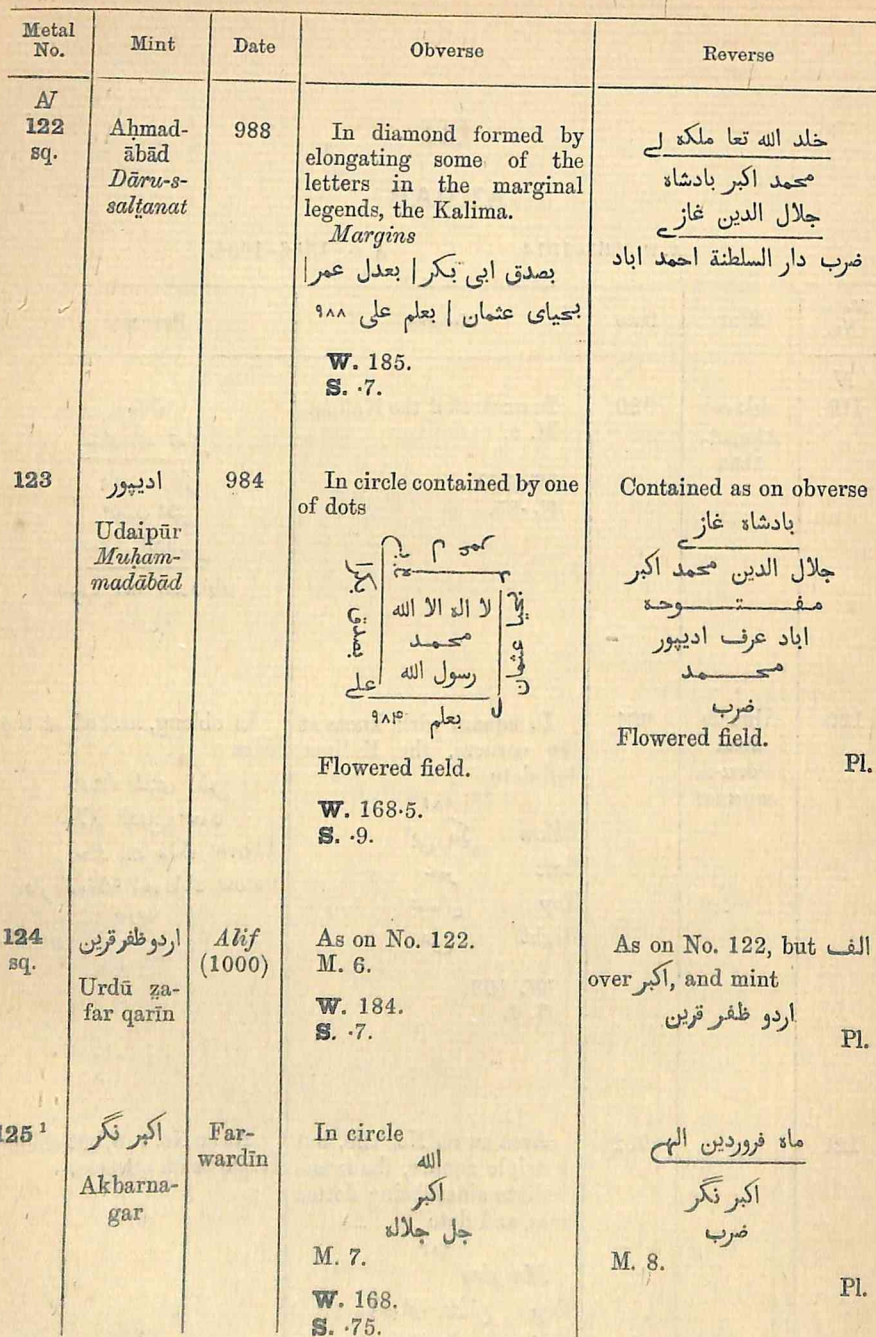 Metal No. Mint Date Obverse Reverse
AV
122 sq.
Aḥmad-
ābād
Dāru-s-
salṭanat
988
In diamond formed by
elongating some of the
letters in the marginal
legends, the Kalima.
Margins
بصدق ابی بکر | بعدل عمر|
بحیای عثمان | بعلم علی ۹۸۸
W. 185.
S. ·7.
خلد الله تعا ملکه لے
محمد اکبر بادشاه
جلال الدین غازے
ضرب دار السلطنة احمد اباد
123
ادیپور
Udaipūr
Muḥam-
madābād
984
In circle contained by one
of dots
لا اله الا الله
محمد
رسول الله
بصدق
بحیا عثمان
علے
بعلم ۹۸۴
Flowered field.
W. 168·5.
S. ·9.
Contained as on obverse
بادشاه غازے
جلال الدین محمد اکبر
مفتوحه
اباد عرف ادیپور
محمد
ضرب
Flowered field.
Pl.
124 sq.
اردو ظفر قرین
Urdū ẓa-
far qarīn
Alif
(1000)
As on No. 122.
M. 6.
W. 184.
S. ·7.
As on No. 122, but الف
over اکبر, and mint
اردو ظفر قرین
Pl.
125 ¹
اکبر نگر
Akbarna-
gar
Far-
wardīn
In circle
الله
اکبر
جل جلاله
M. 7.
W. 168.
S. ·75.
ماه فروردین الہے
اکبر نگر
ضرب
M. 8.
Pl.